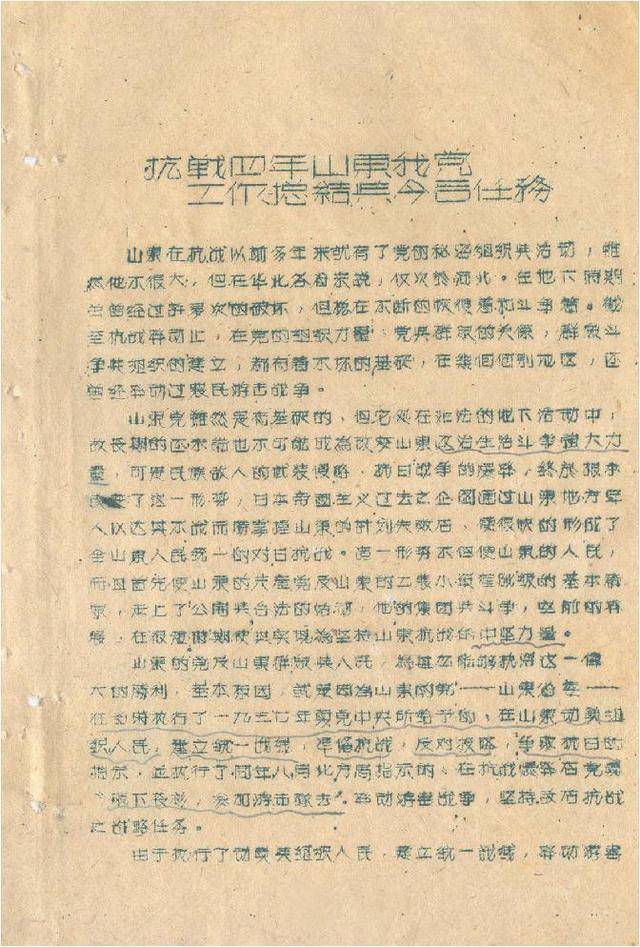 抗战四年山東我党
工作总結与今后任務
山東在抗战以前多年来就有了党的秘密組织与活动，雖
然他不很大，但在华北各省来説，仅次於河北。在地下時期
虽曾经过許多次的破坏，但總在不断的恢復着和斗争着。截
至抗战發动止，在党的組织力量，党与群众的关係，群众斗
争与組织的建立，都有着不坏的基础，在幾個個别地区，还
曾经举动过農民游击战争。
山東党雖然是有基础的，但它处在非法的地下活动中，
故長期的 也不可能成為改变山東政治生活斗争強大力
量，可是民族敌人的武装侵略，抗日战争的爆發，終於根本
改变了这一形势，日本帝國主义过去之企圖通过山東地方軍
人以达其不战而勝掌握山東的計划失敗后，便很快的形成了
全山東人民統一的对日抗战。這一形势不但使山東的人民，
而且首先使山東的共產党及山東的工農小資產階级的基本群
众，走上了公開与合法的 ，他的集团与斗争，空前的發
展，在很短時期便出实現為坚持山東抗战的中坚力量。
山東的党及山東群众与人民，為甚么能够执得这一偉
大的勝利，基本原因，就是因為山東的党——山東省委——
在当時执行了一九三七年夏党中央所給予的，在山東动員組
织人民，建立統一战线，準備抗战，反对投降，争取抗日的
指示，並执行了同年八月北方局指示的，在抗战爆發后党員
“脱下長衫，參加游击隊去”，举动游击战争，坚持敌后抗战
之战略任务。
由于执行了动員与組织人民，建立統一战线，举动游击